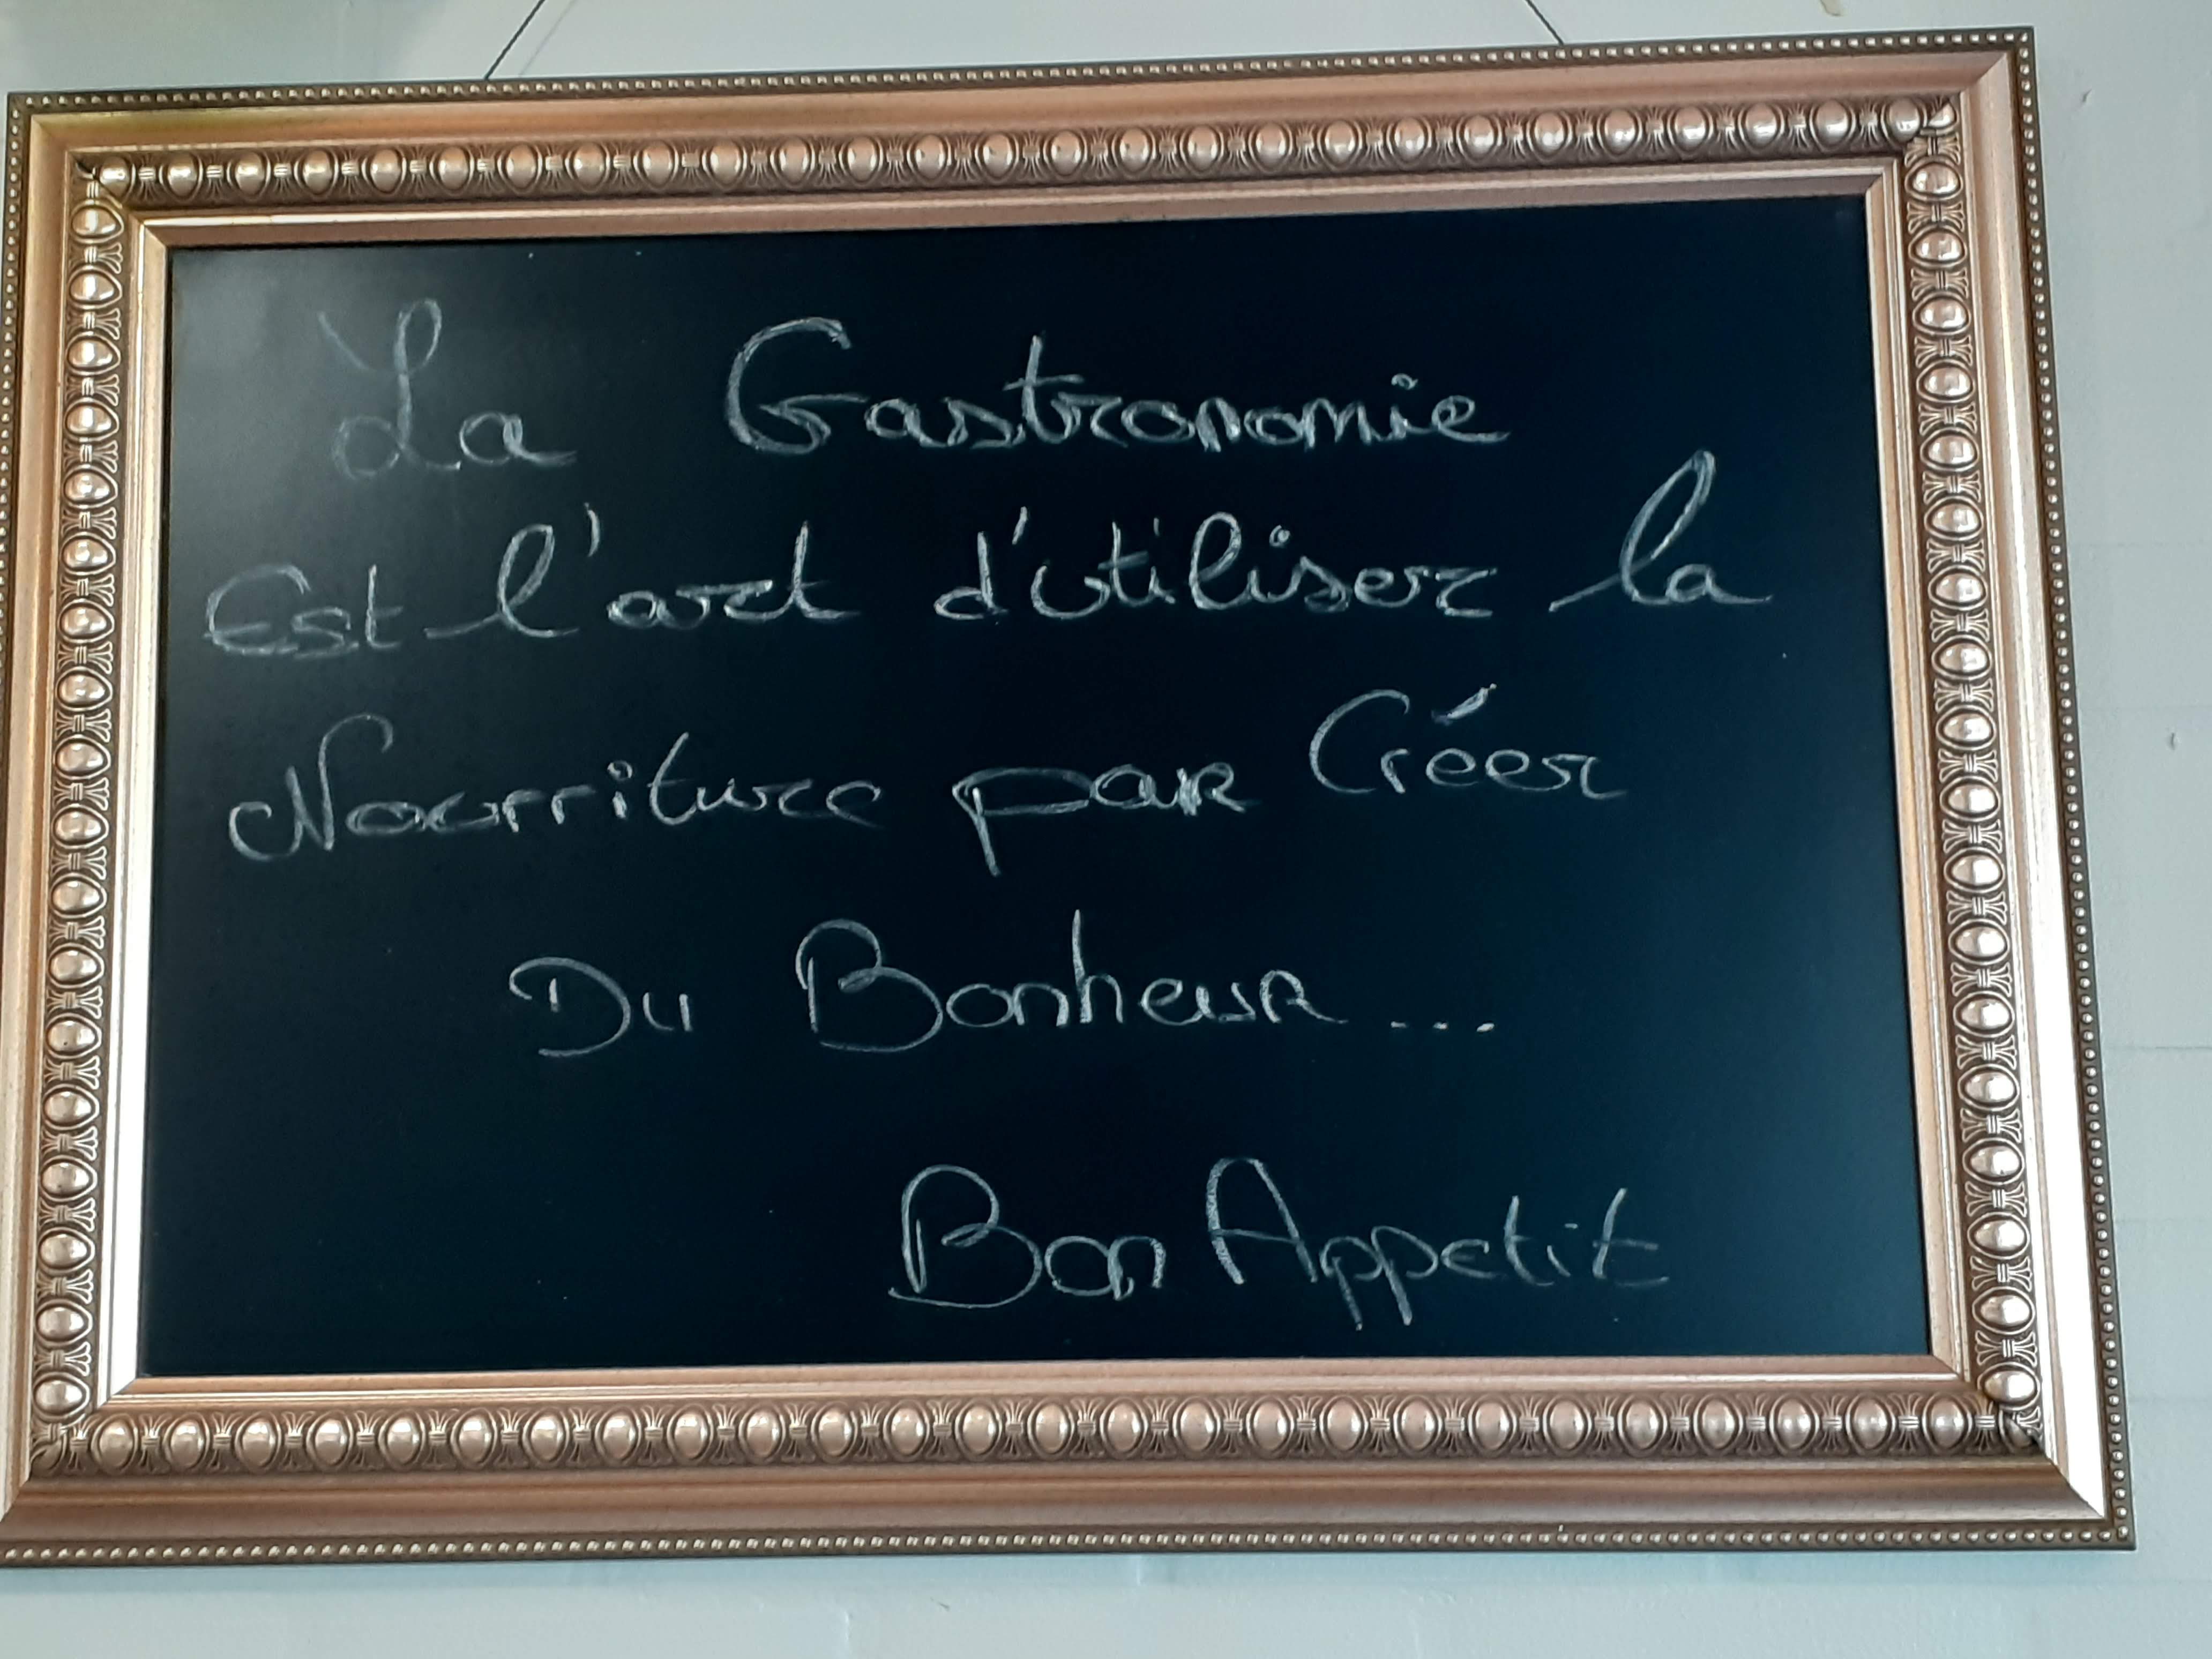 La Gastronomie
Est l'art d'utiliser la
Nourriture par Créer
Du Bonheur...
Bon Appetit